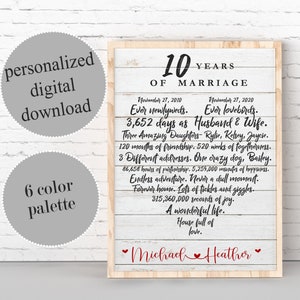 personalized
digital
download
6 color
palette
10 YEARS
OF MARRIAGE
November 27, 2020 November 27, 2020
Ever newlyweds. Ever lovebirds.
3,652 days as Husband & Wife.
Three Amazing Daughters- Rylie, Kelsey, Jaycie.
120 months of friendship. 520 weeks of togetherness.
3 Different addresses. One crazy dog, Bailey.
hours of partnership. minutes of happiness.
Endless adventure. Never a dull moment.
Forever home. Lots of tickles and giggles.
315,360,000 seconds of joy.
A wonderful life.
House full of
love.
Michael Heather